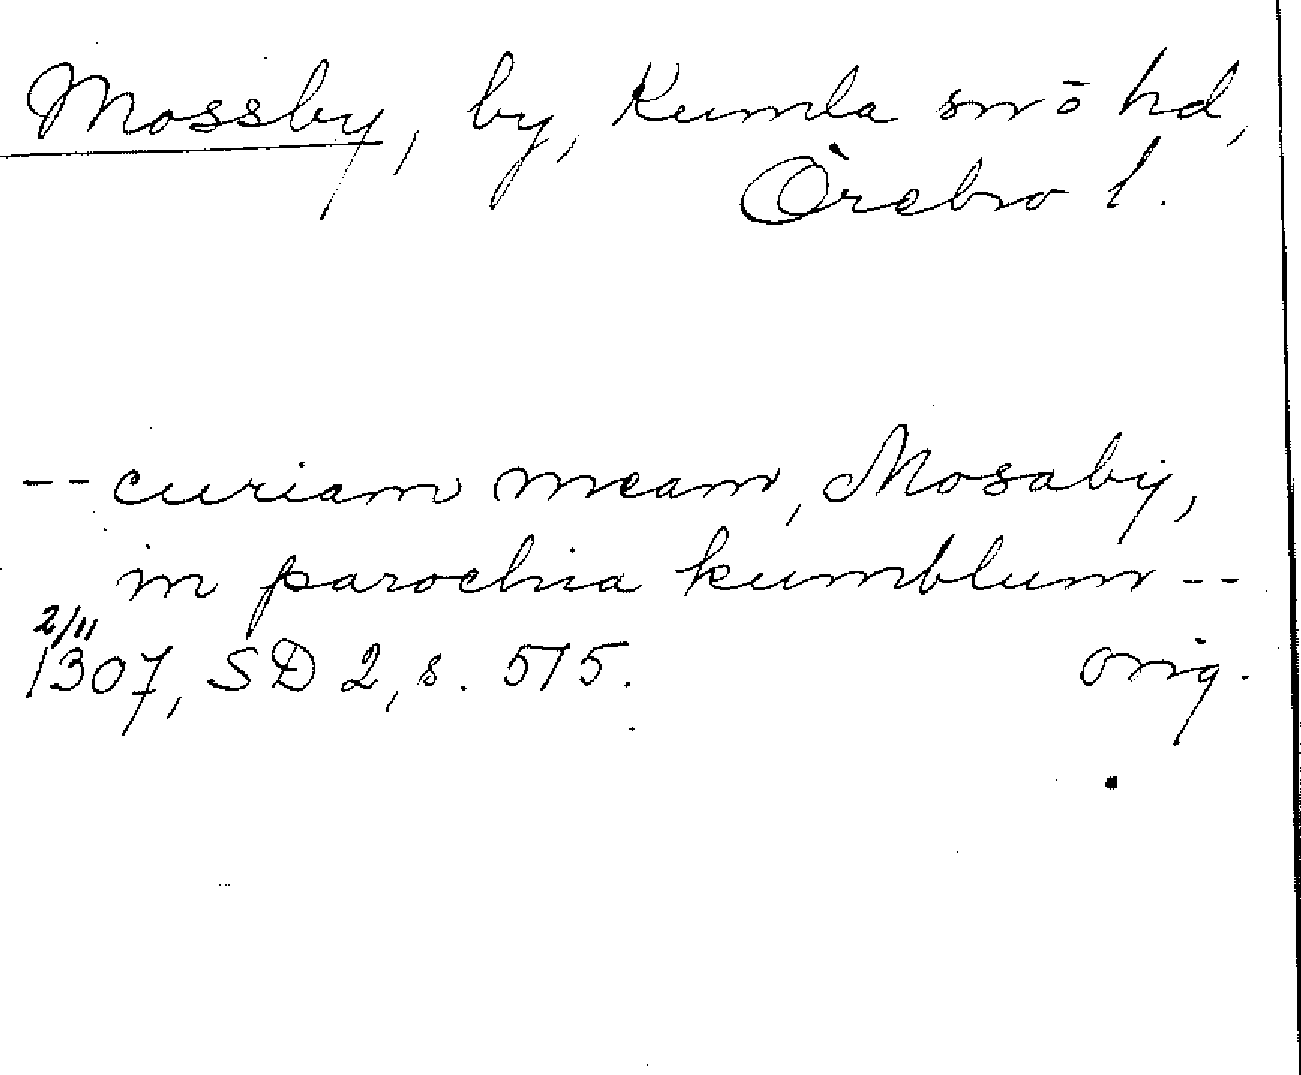 Mossby, by, Kumla sn o hd,
Örebro l.
-- curiam meam, Mosaby,
in parochia kumblum --
2/11
1307, SD 2, s. 575.
orig.